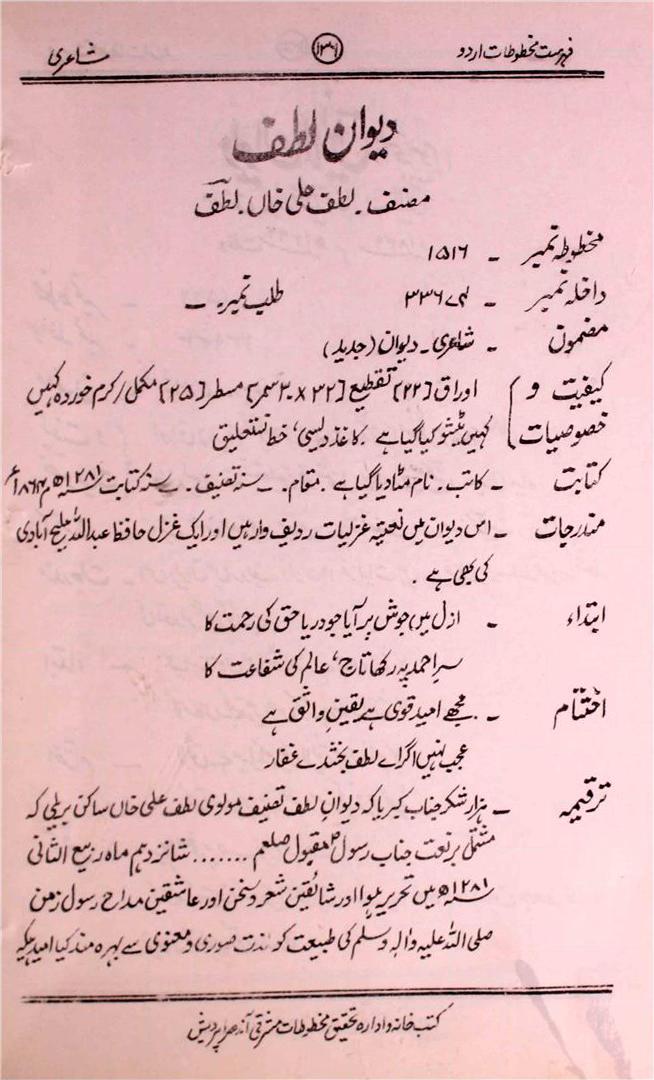 فہرست مخطوطات اردو
شاعری
دیوان لطف
مصنف ۔ لطف علی خاں ۔ لطفؔ
مخطوطہ نمبر ۔ ۱۵۱۶
داخلہ نمبر ۔ طلب نمبر ۔ ــ
مضمون ۔ شاعری ۔ دیوان (جدید)
کیفیت و اوراق [۲۲] تقطیع [۳۲ × ۲۰ سمر] مسطر [۲۵] مکمل / کرم خوردہ کہیں
خصوصیات کہیں ٹیشو کیا گیا ہے ۔ کاغذ دیسی، خط نستعلیق
کتابت ۔ کاتب ۔ نام مٹادیا گیا ہے ۔ مقام ۔ ــ سنہ تصنیف ۔ ــ سنہ کتابت ۱۲۸۱ھ م ۱۸۶۴ء
مندرجات ۔ اس دیوان میں نعتیہ غزلیات ردیف وار ہیں اور ایک غزل حافظ عبداللہ ملیح آبادی
کی بھی ہے ۔
ابتداء ۔ ازل میں جوش پر آیا جو دریا حق کی رحمت کا
سر احمد پہ رکھا تاج، عالم کی شفاعت کا
اختتام ۔ مجھے امید قوی ہے یقین واثق ہے
عجب نہیں اگر اے لطف بخشدے غفار
ترقیمہ ۔ ہزار شکر جناب کبریا کہ دیوان لطف تصنیف مولوی لطف علی خاں ساکن بریلی کہ
مشتمل بر نعت جناب رسول مقبول صلعم ....... شانزدہم ماہ ربیع الثانی
۱۲۸۱ھ میں تحریر ہوا اور شائقین شعر و سخن اور عاشقین مداح رسول زمن
صلی اللہ علیہ والہ وسلم کی طبیعت کو لذت صوری و معنوی سے بہرہ مند کیا امید ہیکہ
کتب خانہ و ادارہ تحقیق مخطوطات مشرقی آندھرا پردیش